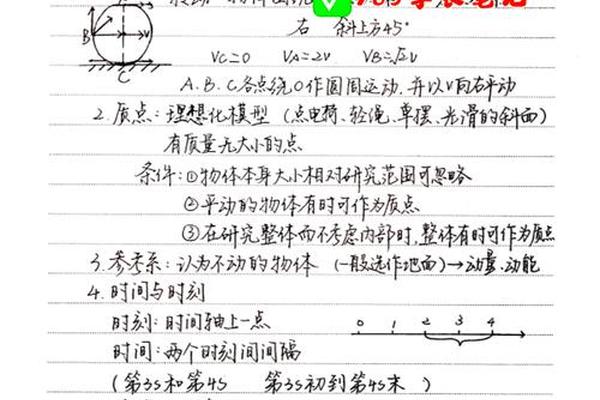 右 斜上方45°
B V
C
VC=0 VA=2V VB=√2V
A.B.C各点绕O作圆周运动,并以V向右平动
2.质点:理想化模型(点电荷、轻绳、单摆、光滑的斜面)
有质量无大小的点
条件:①物体本身大小相对研究范围可忽略
②平动的物体有时可作为质点
③在研究整体而不考虑内部时,整体有时可作为质点
3.参考系:认为不动的物体 (一般选作地面)→动量、动能
4.时间与时刻
时刻:时间轴上一点 0 1 2 3 4
时间:两个时刻间间隔
(第3s和第4s 第3s初到第4s末)